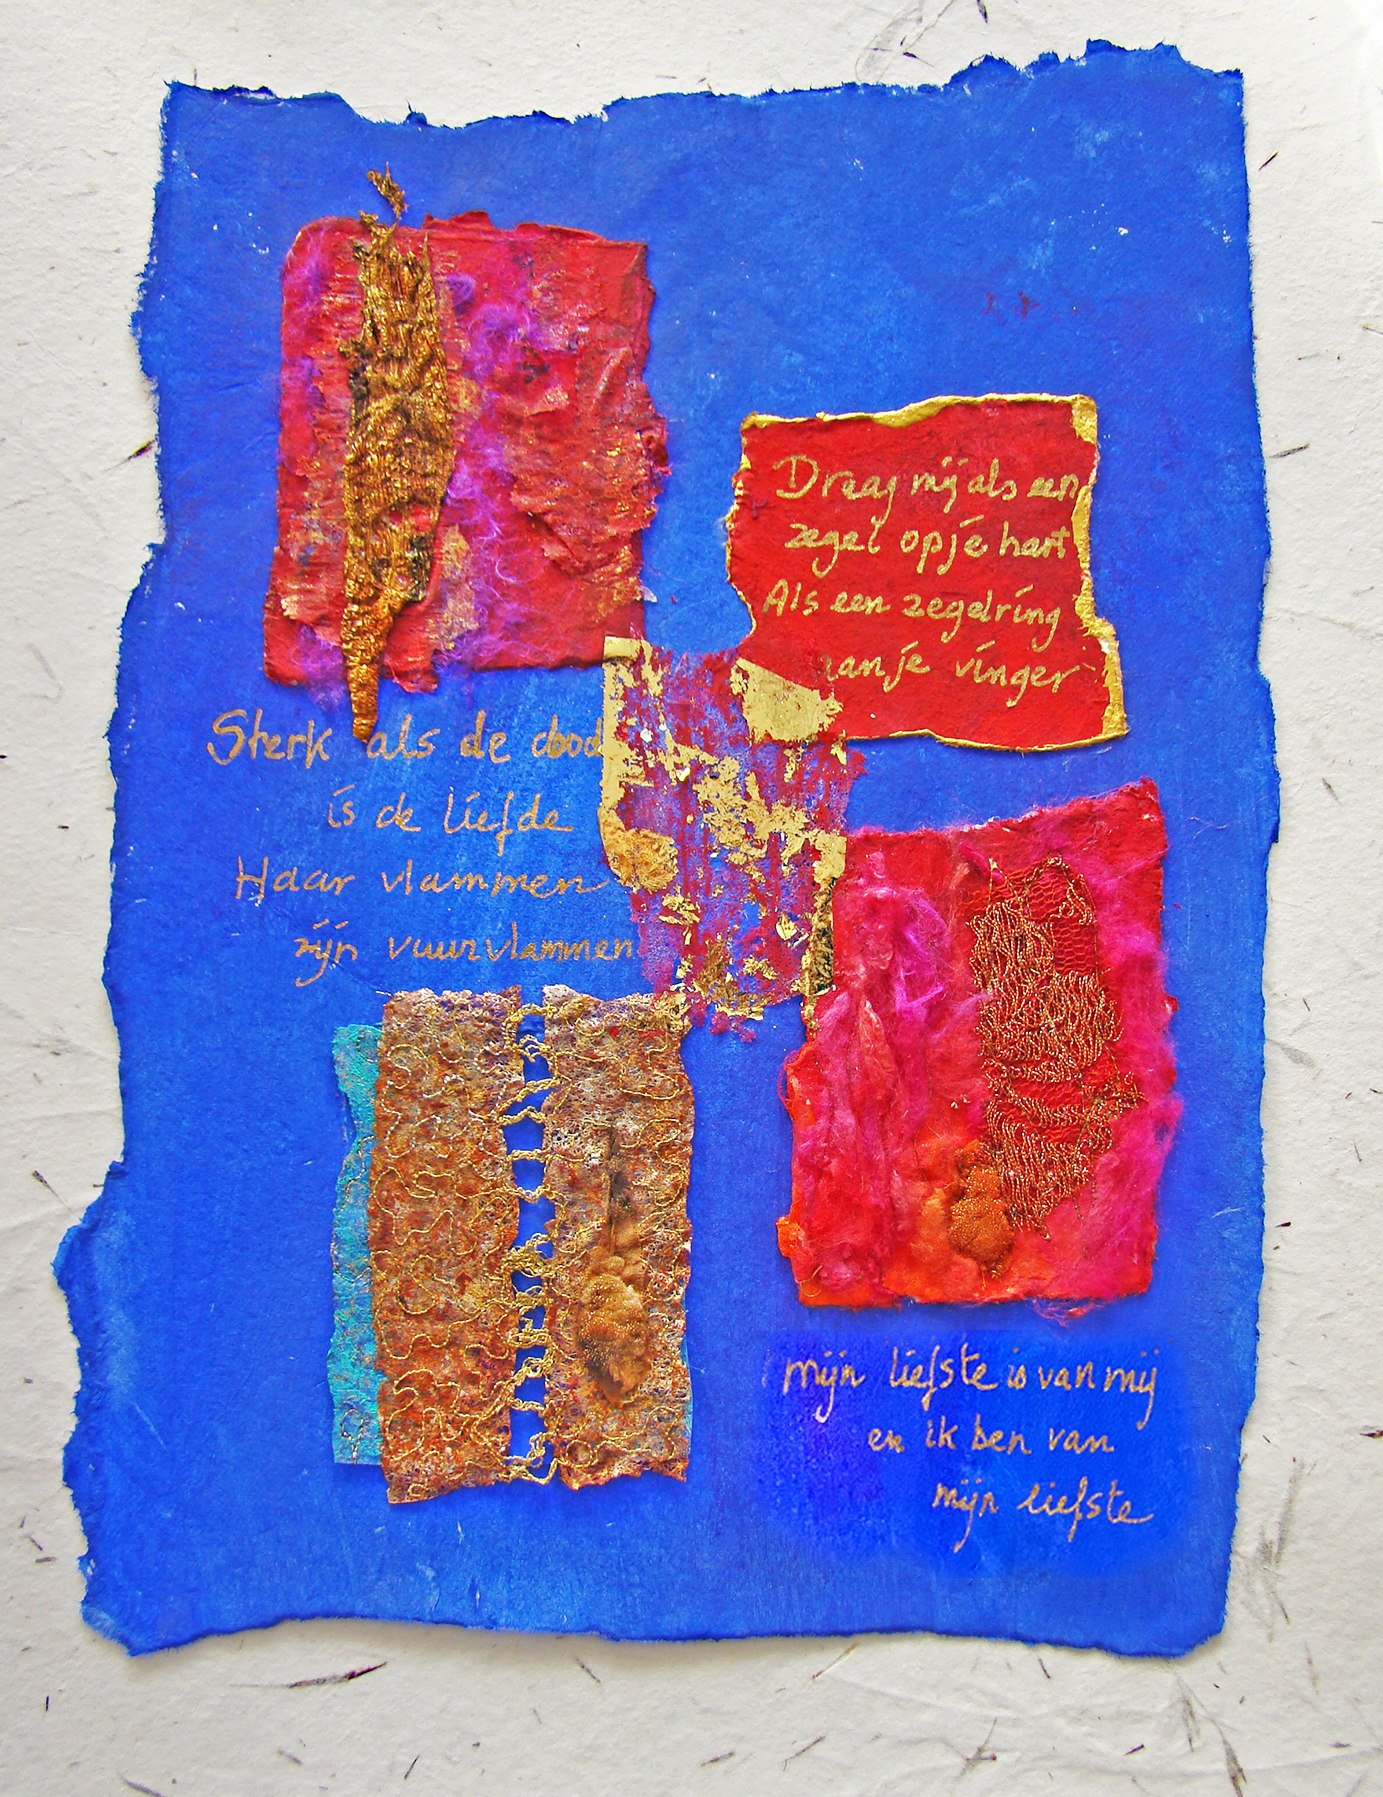 Draag mij als een
zegel op je hart
Als een zegelring
aan je vinger
Sterk als de dood
is de liefde
Haar vlammen
zijn vuurvlammen
mijn liefste is van mij
en ik ben van
mijn liefste